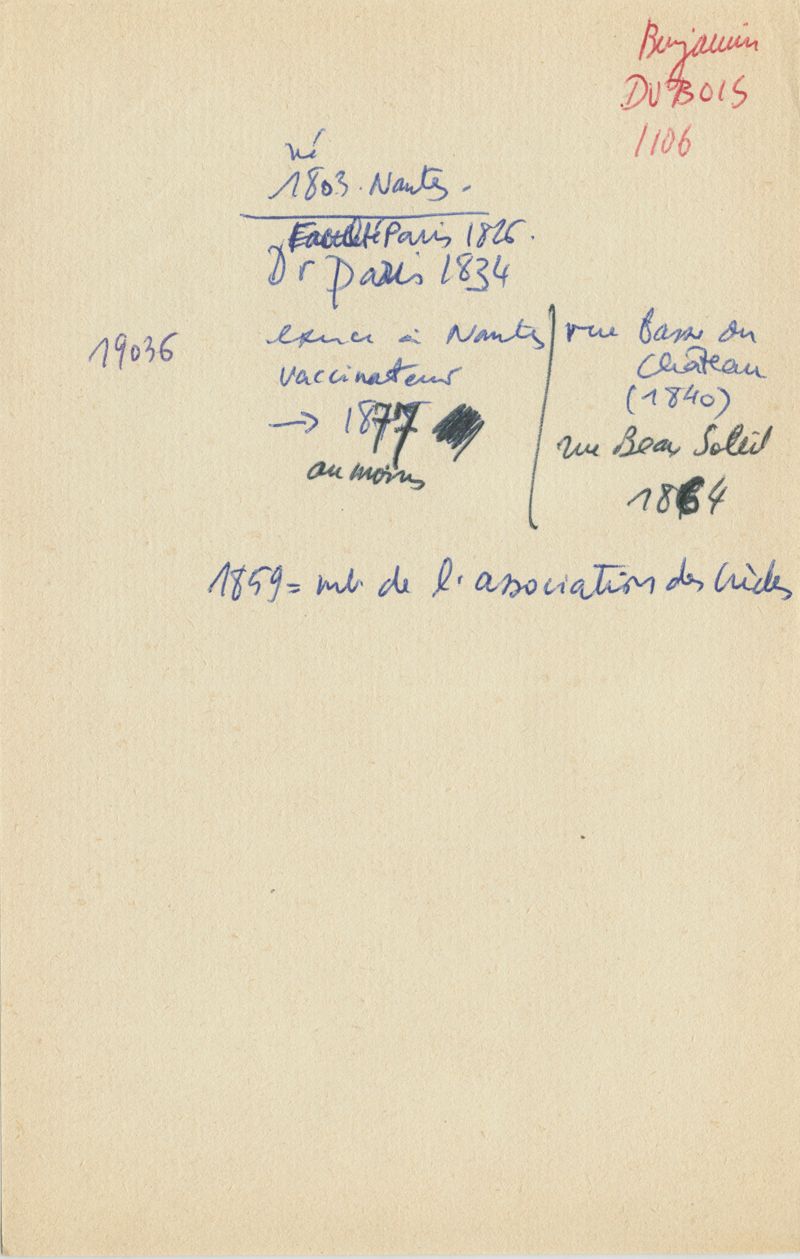 Benjamin
DUBOIS
1106
né
1803. Nantes.
Faculté Paris 1826.
Dr Paris 1834
19036
exerce à Nantes
vaccinateur
→ 1877
au moins
rue Basse du
Château
(1840)
rue Beau Soleil
1864
1859 = mb. de l'association des Crèches